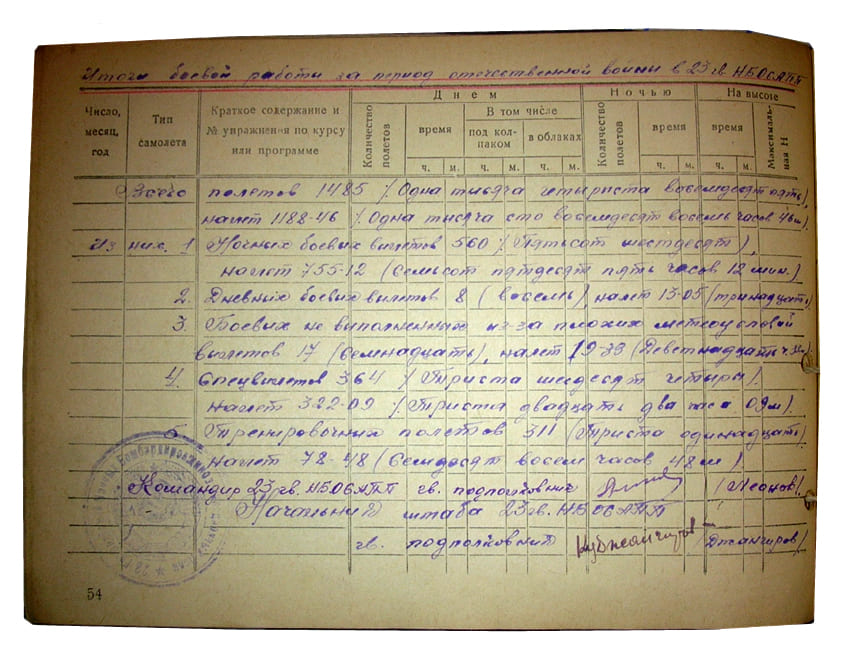 Итоги боевой работы за период отечественной войны в 23 гв. НБОСАПП
Число, месяц, год
Тип самолета
Краткое содержание и № упражнения по курсу или программе
Днем
Количество полетов
время
В том числе
под колпаком
в облаках
Ночью
Количество полетов
время
На высоте
время
Максимальная Н
ч. м. ч. м. ч. м. ч. м. ч. м.
Всего полетов 1485 (Одна тысяча четыриста восемдесят пять),
налет 1188-46 (Одна тысяча сто восемдесят восемь часов 46 м).
Из них. 1. Ночных боевых вылетов 560 (Пятьсот шестдесят),
налет 755-12 (Семьсот пятдесят пять часов 12 мин.)
2. Дневных боевых вылетов 8 (восемь), налет 13-05 (тринадцать)
3. Боевых не выполненных из-за плохих метеоусловий
вылетов 17 (Семнадцать), налет 19-39 (Деветнадцать ч.
4. Спецвылетов 364 (Триста шесдесят четыре).
налет 322-09 (Триста двадцать два часа 09 м).
5. Тренировочных полетов 311 (Триста одинадцать)
налет 78-48 (Семдесят восем часов 48 м)
Командир 23 гв. НБОСАПП гв. подполковник (Леонов).
Начальник штаба 23 гв. НБОСАПП
гв. подполковник (Джангиров)
54